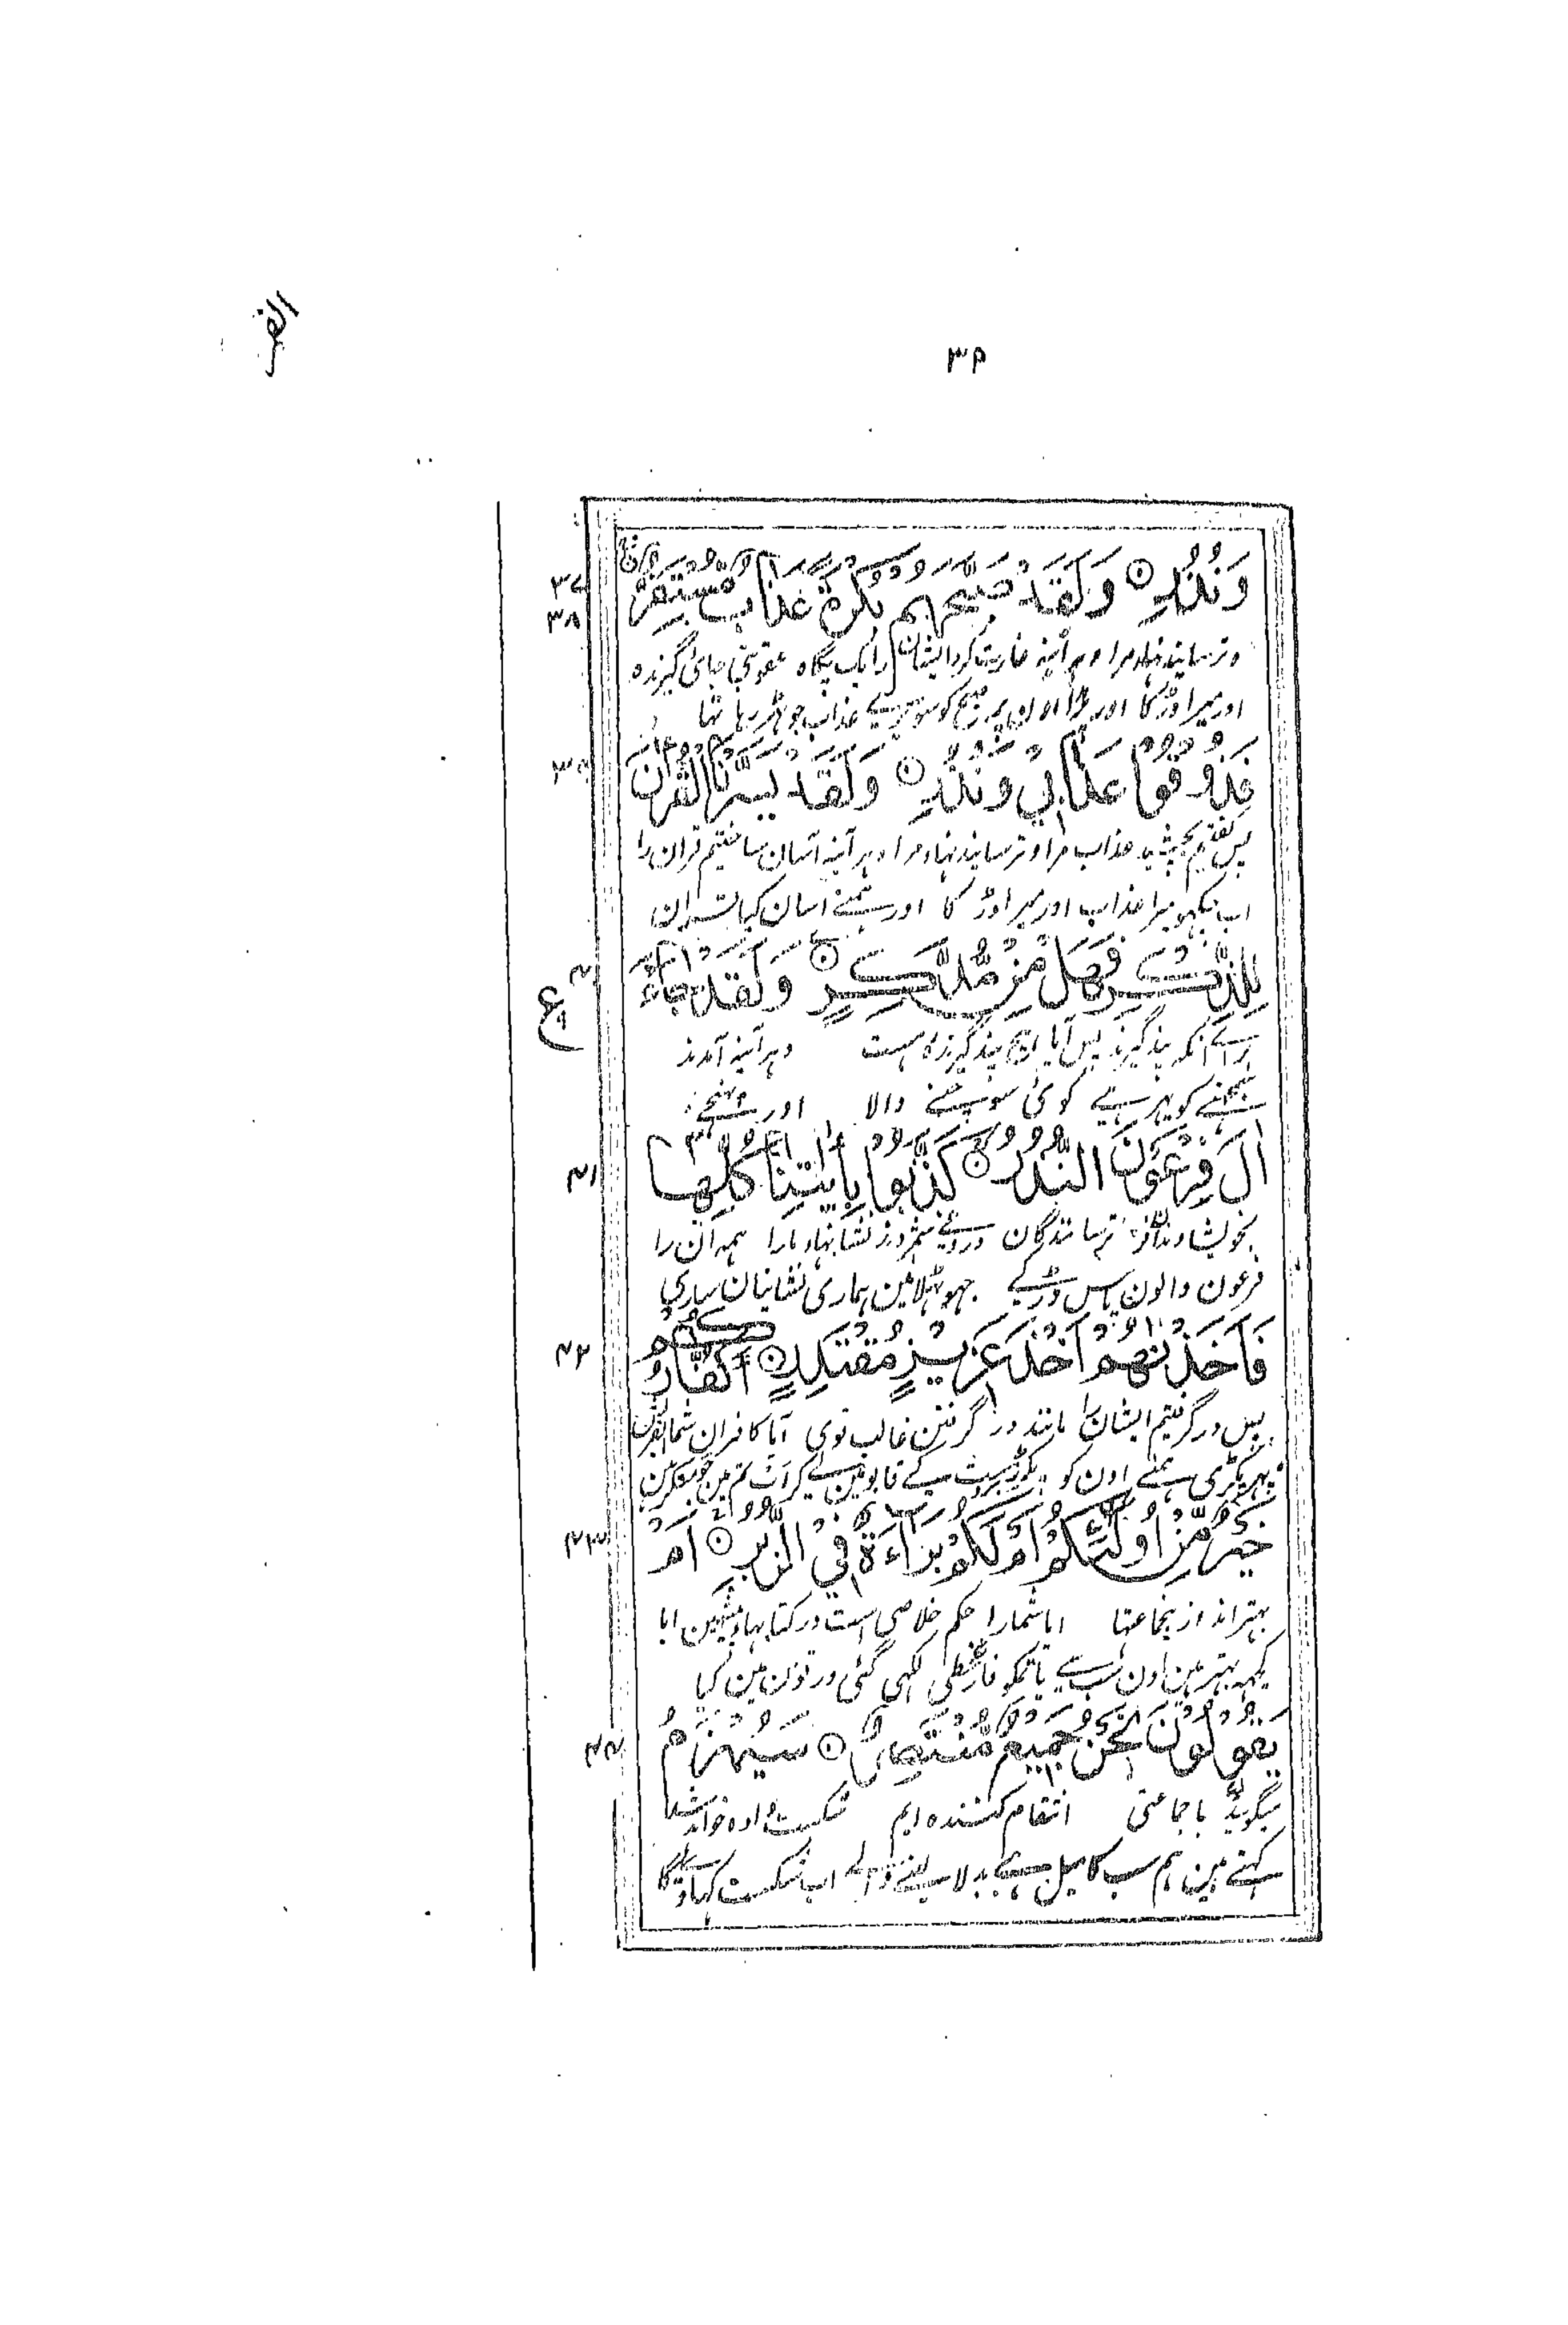 القمر
وَنُذُرِ ۞ وَلَقَدْ صَبَّحَهُم بُكْرَةً عَذَابٌ مُّسْتَقِرٌّ
۳۷
۳۸
و ترسانیدنهاء مرا و هر آئینه غارت کرد ایشان را یک پگاه عقوبتی جائ گیرنده
اور میرا ڈر کا اور پڑا اون پر صبح کو سویرے عذاب جو ٹھر رہا تہا
فَذُوقُوا عَذَابِي وَنُذُرِ ۞ وَلَقَدْ يَسَّرْنَا الْقُرْآنَ
۳۹
پس گفتیم بچشید عذاب مرا و ترسانیدنهاء مرا و هر آئینه آسان ساختیم قرآن را
اب چکہو میرا عذاب اور میرا ڈر کا اور ہمنے آسان کیا قرآن
لِلذِّكْرِ فَهَلْ مِن مُّدَّكِرٍ ۞ وَلَقَدْ جَاءَ
۴۰
ع
براے آنکہ پند گیرند پس آیا ہیچ پند گیرندہ ہست و ہر آئینہ آمدند
سمجہنے کو پہر ہے کوئ سوچنے والا اور پہنچے
آلَ فِرْعَوْنَ النُّذُرُ ۞ كَذَّبُوا بِآيَاتِنَا كُلِّهَا
۴۱
بخویشاوندان ترسانندگان دروغ شمردند نشانہاء مارا ہمہ آن را
فرعون والون پاس ڈر کے جہوٹہلائین ہماری نشانیان ساری
فَأَخَذْنَاهُمْ أَخْذَ عَزِيزٍ مُّقْتَدِرٍ ۞ أَكُفَّارُكُمْ
۴۲
پس در گرفتیم ایشان را مانند در گرفتن غالب قوی آیا کافران شما
پہر پکڑی ہمنے اون کو پکڑ زبردست کے قابو مین لے کر اب تم مین جو منکر ہین
خَيْرٌ مِّنْ أُولَٰئِكُمْ أَمْ لَكُم بَرَاءَةٌ فِي الزُّبُرِ ۞ أَمْ
۴۳
بہتر اند ازینجماعتہا ایا شمارا حکم خلاصی است در کتابہاء پیشین ایا
کچہہ بہتر ہین اون سب سے یا تمکو فارغخطی لکہی گئی ورقون مین کیا
يَقُولُونَ نَحْنُ جَمِيعٌ مُّنتَصِرٌ ۞ سَيُهْزَمُ
۴۴
میگویند با جماعتی انتقام کشندہ ایم شکست دادہ خواہد شد
کہتے ہین ہم سب کا میل ہے بدلا لینے والے اب شکست کہاویگا